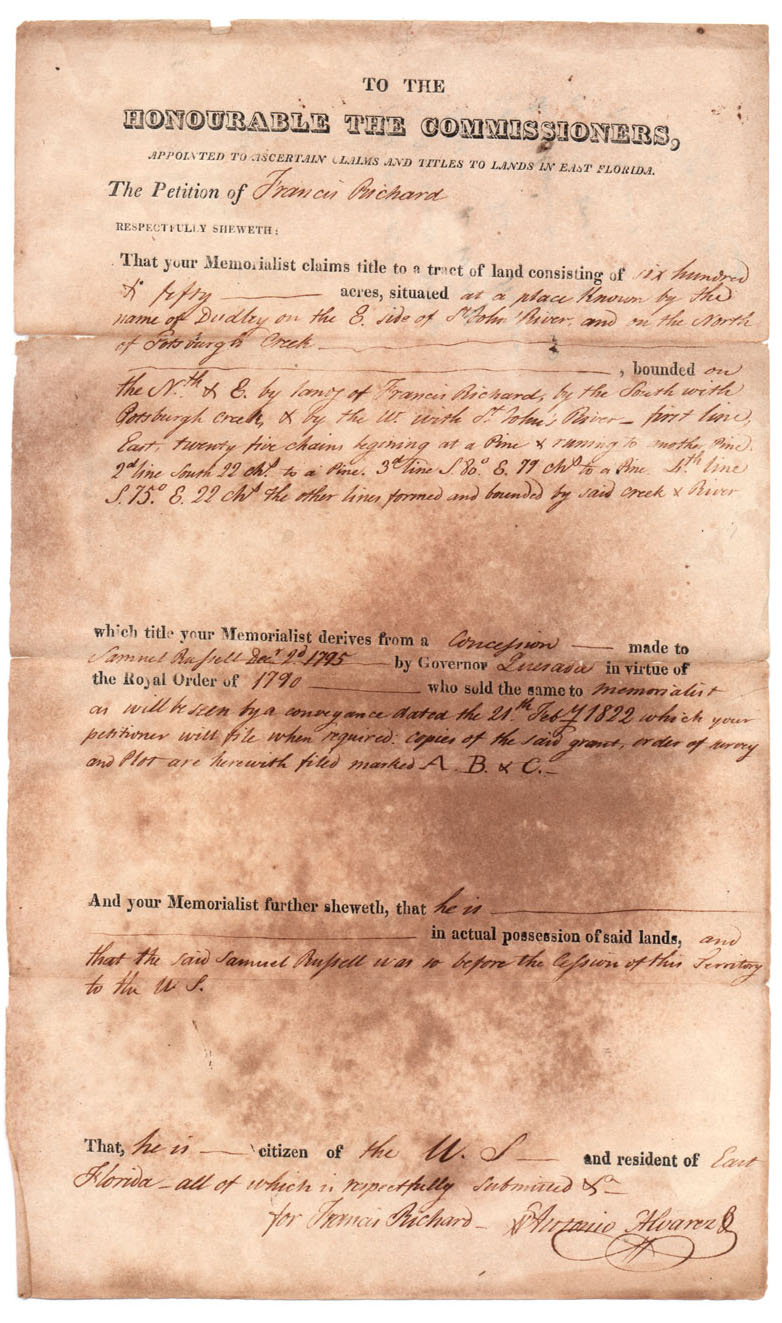 TO THE
HONOURABLE THE COMMISSIONERS,
APPOINTED TO ASCERTAIN CLAIMS AND TITLES TO LANDS IN EAST FLORIDA.
The Petition of Francis Richard
RESPECTFULLY SHEWETH:
That your Memorialist claims title to a tract of land consisting of six hundred
& fifty acres, situated at a place Known by the
name of Dudley on the E. side of St John River, and on the North
of Pottsburgh Creek
, bounded on
the Nth & E. by lands of Francis Richard, by the South with
Pottsburgh Creek, & by the W. with St John's River - first line,
East, twenty five chains begining at a Pine & running to another Pine.
2d line South 22 chs to a Pine. 3d line S. 80° E. 79 chs to a Pine. 4th line
S. 75° E. 22 chs the other lines formed and bounded by said Creek & River
which title your Memorialist derives from a Concession made to
Samuel Russell Decr 2d 1795 by Governor Quesada in virtue of
the Royal Order of 1790 who sold the same to memorialist
as will be seen by a conveyance dated the 21th Feby 1822 which your
petitioner will file when required: copies of the said grant, order of survey
and Plot are herewith filed marked A. B. & C. -
And your Memorialist further sheweth, that he is
in actual possession of said lands, and
that the said Samuel Russell was so before the Cession of this Territory
to the U S.
That, he is citizen of the U. S and resident of East
Florida - all of which is respectfully submitted &c
for Francis Richard - Antonio Alvarez